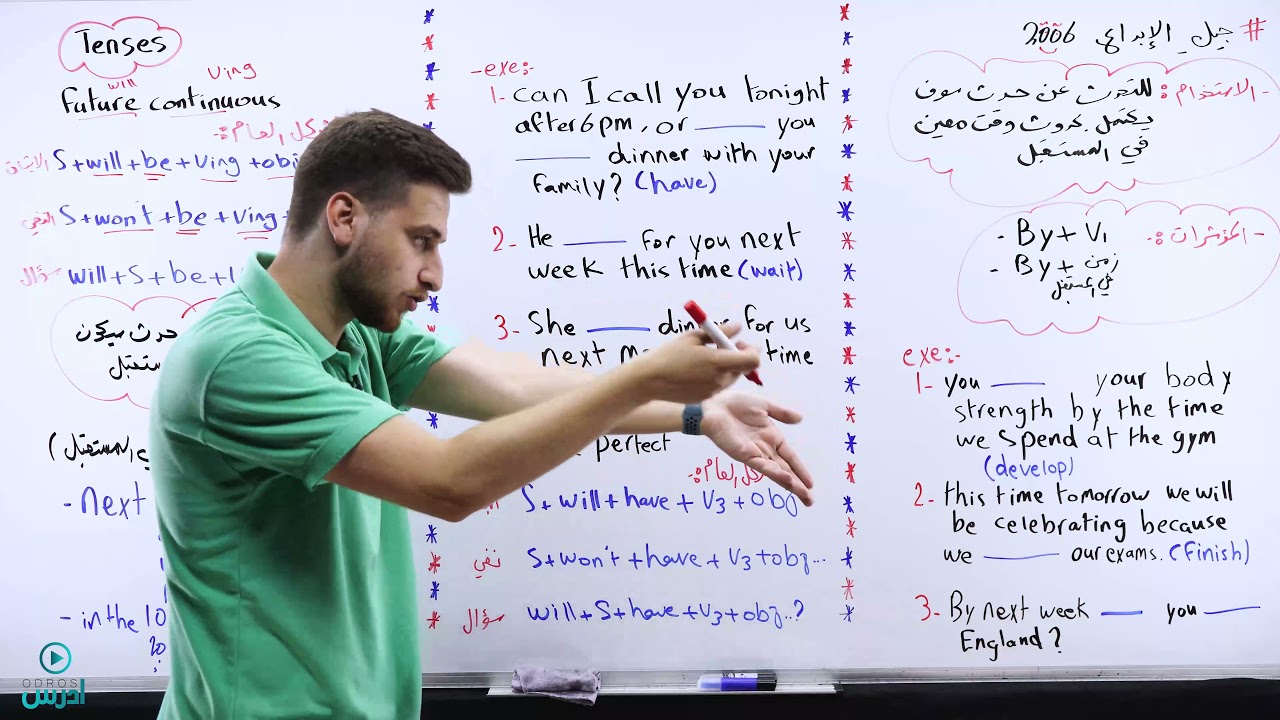 Tenses
will
Ving
future continuous
الاثبات S+will+be+Ving+obj
النفي S+won't+be+Ving+
سؤال will+S+be+V
حدث سيكون
- next
- in the 10
20
-exe:-
1- Can I call you tonight
after 6pm, or ____ you
____ dinner with your
family? (have)
2- He ____ for you next
week this time (wait)
3- She ____ dinner for us
next time
perfect
S+will+have+V3+obj
نفي S+won't+have+V3+obj...
سؤال will+S+have+V3+obj..?
# جيل الإبداع 2006
- الاستخدام :- للتحدث عن حدث سوف
يكتمل بحدوث وقت معين
في المستقبل
- المؤشرات :- - By+V1
- By+ زمن
في المستقبل
exe:-
1- you ____ your body
strength by the time
we spend at the gym
(develop)
2- this time tomorrow we will
be celebrating because
we ____ our exams. (finish)
3- By next week ____ you ____
England?
ODROS
ادرس